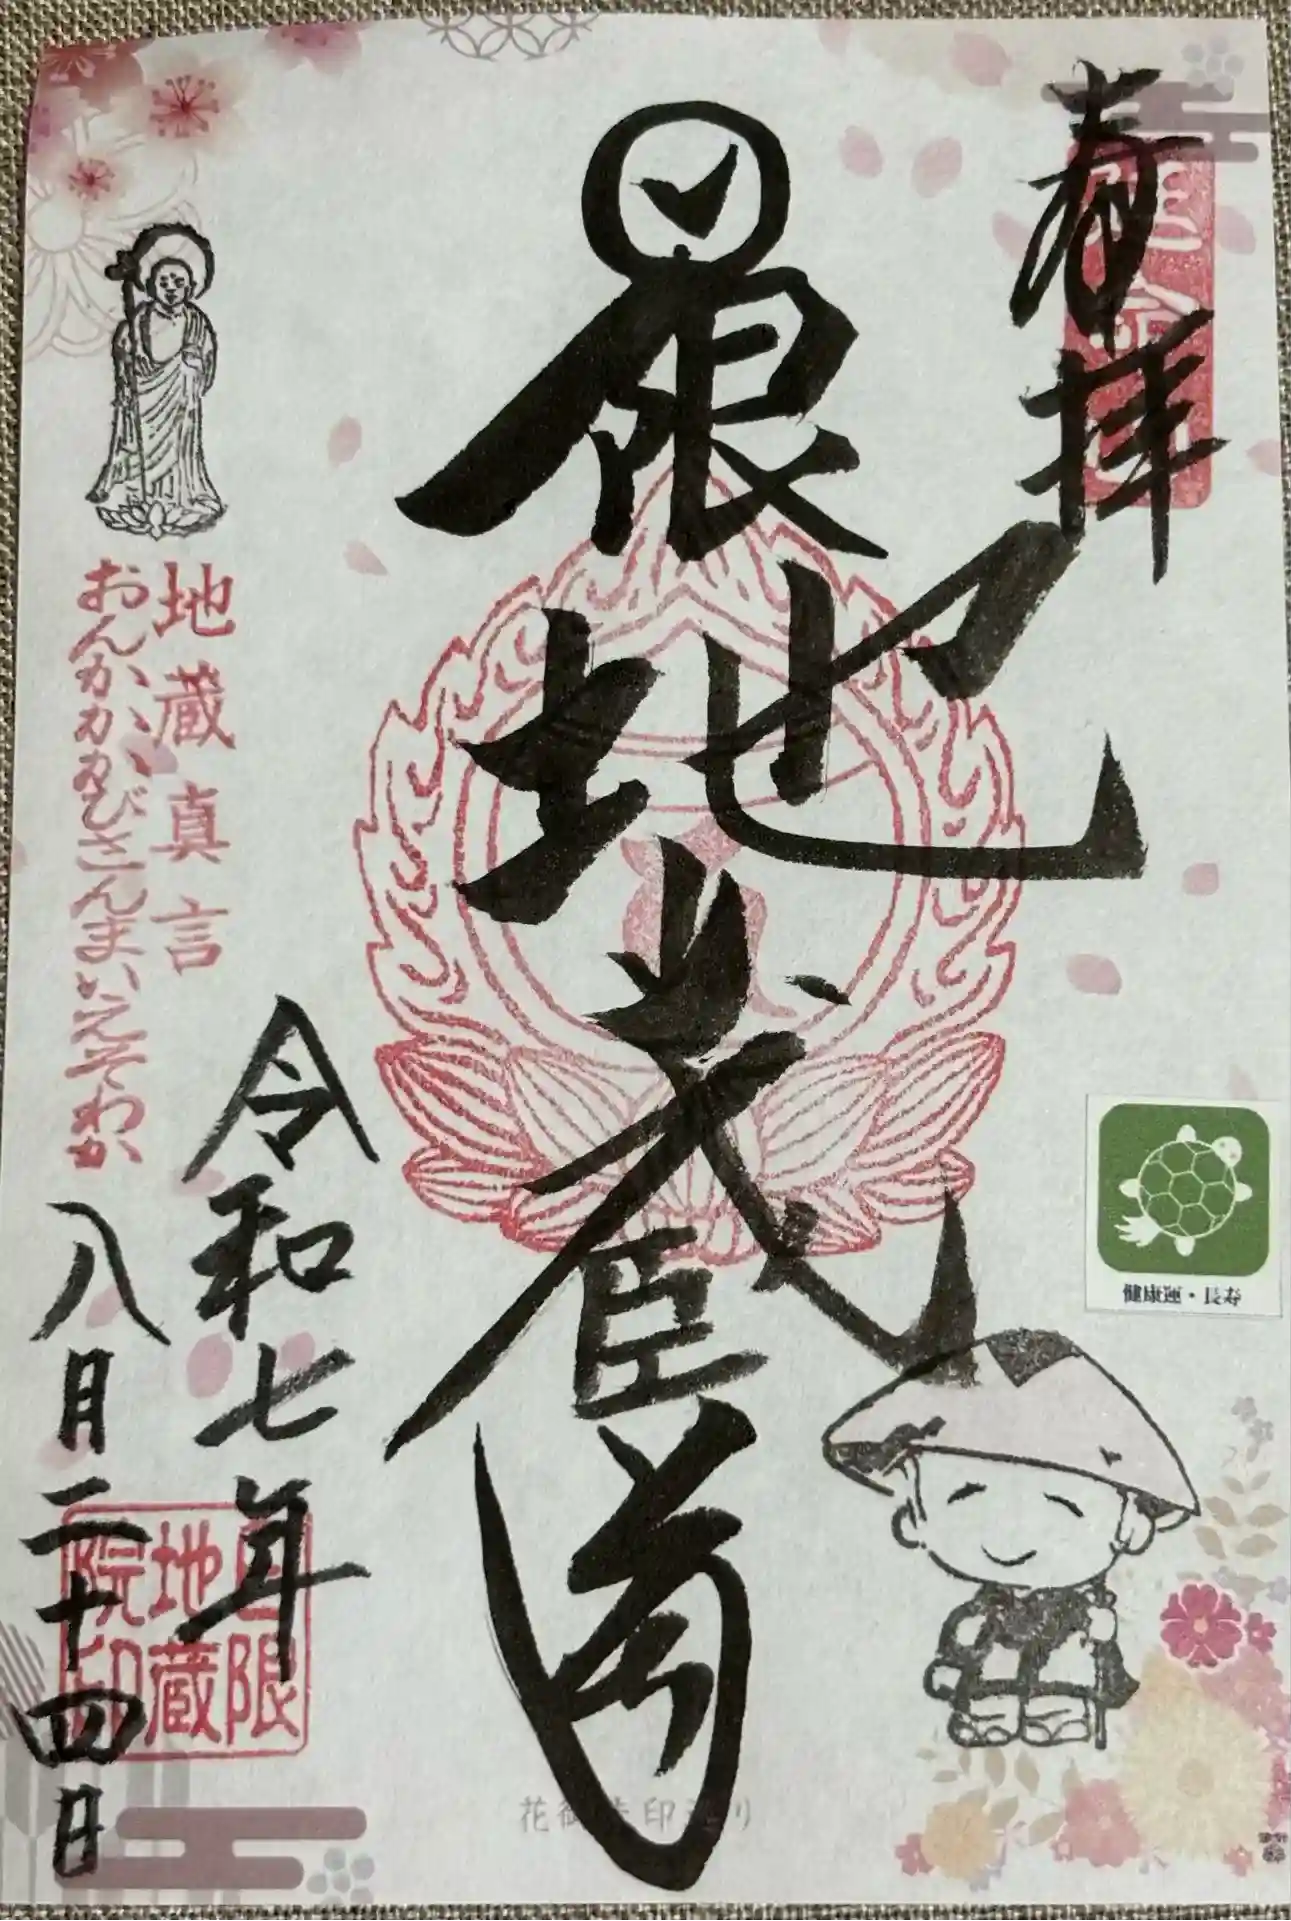 奉拝
日限地蔵尊
地蔵真言
おんかかかびさんまいえそわか
令和七年
八月二十四日
日限
地蔵
院印
健康運・長寿